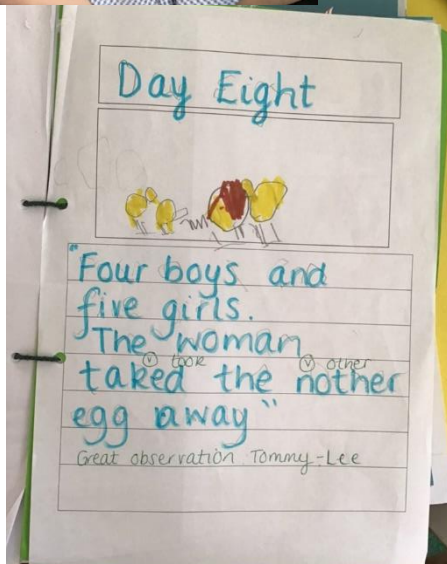 Day Eight
"Four boys and
five girls.
The woman
ⓥ took ⓥ other
taked the nother
egg away"
Great observation Tommy-Lee